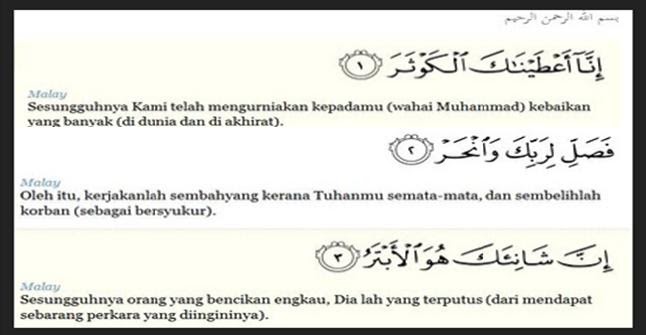 بسم الله الرحمن الرحيم
إِنَّآ أَعْطَيْنَٰكَ ٱلْكَوْثَرَ ١
Malay
Sesungguhnya Kami telah mengurniakan kepadamu (wahai Muhammad) kebaikan
yang banyak (di dunia dan di akhirat).
فَصَلِّ لِرَبِّكَ وَٱنْحَرْ ٢
Malay
Oleh itu, kerjakanlah sembahyang kerana Tuhanmu semata-mata, dan sembelihlah
korban (sebagai bersyukur).
إِنَّ شَانِئَكَ هُوَ ٱلْأَبْتَرُ ٣
Malay
Sesungguhnya orang yang bencikan engkau, Dia lah yang terputus (dari mendapat
sebarang perkara yang diingininya).